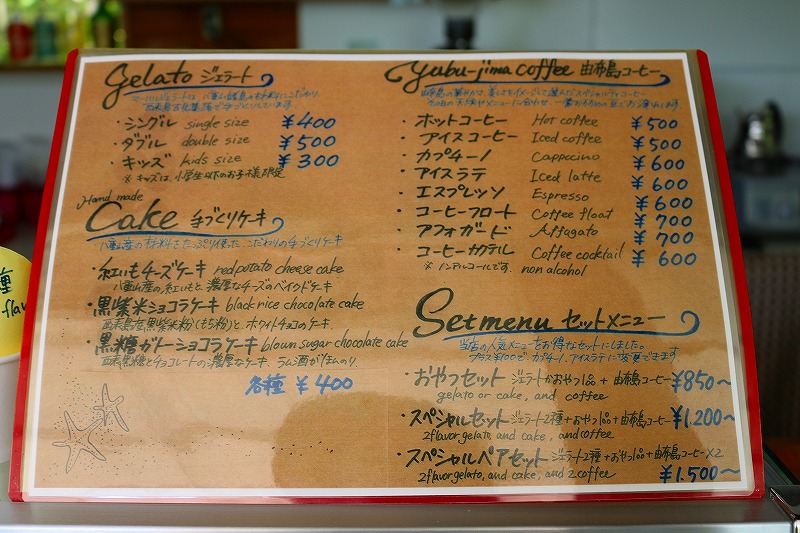 gelato ジェラート
・シングル single size ¥400
・ダブル double size ¥500
・キッズ kids size ¥300
※キッズは、小学生以下のお子様限定
Hand made
Cake 手づくりケーキ
八重山産の材料をたっぷり使った、こだわりの手づくりケーキ
・紅いもチーズケーキ red potato cheese cake
八重山産の紅いもと、濃厚なチーズのベイクドケーキ
・黒紫米ショコラケーキ black rice chocolate cake
西表島産黒紫米粉(もち粉)と、ホワイトチョコのケーキ.
・黒糖ガトーショコラケーキ blown sugar chocolate cake
西表黒糖とチョコレートの濃厚なケーキ、ラム酒がほんのり.
各種 ¥400
yubu-jima coffee 由布島コーヒー
・ホットコーヒー Hot coffee ¥500
・アイスコーヒー Iced coffee ¥500
・カプチーノ Cappccino ¥600
・アイスラテ Iced latte ¥600
・エスプレッソ Espresso ¥600
・コーヒーフロート Coffee float ¥700
・アフォガード Affagato ¥700
・コーヒーカクテル Coffee cocktail ¥600
※ノンアルコールです. non alcohol
Set menu セットメニュー
当店の人気メニューをお得なセットにしました。
プラス¥100で、カプチーノ、アイスラテに変更できます.
・おやつセット ジェラートかおやつ1品 + 由布島コーヒー ¥850~
gelato or cake, and coffee
・スペシャルセット ジェラート2種+おやつ1品+由布島コーヒー ¥1.200~
2flavor gelato, and cake, and coffee
・スペシャルペアセット ジェラート2種+おやつ1品+由布島コーヒー×2
2flavor gelato, and cake, and 2coffee ¥1.500~
種
flav